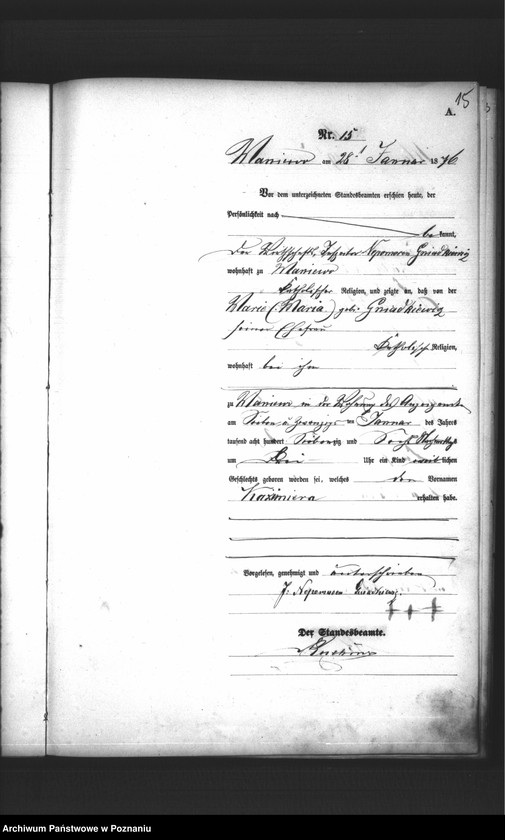 15
A.
Nr. 15
Maniewo am 28 Januar 1876
Vor dem unterzeichneten Standesbeamten erschien heute, der
Persönlichkeit nach
be kannt,
Der Nepomucen
wohnhaft zu Maniewo
katholischer Religion, und zeigte an, daß von der
Marie (Maria) geb:
seiner Ehefrau
katholisch Religion,
wohnhaft bei ihm
zu Maniewo in der Wohnung des
am Sieben u zwanzigs ten Januar des Jahres
tausend acht hundert Siebenzig und Sechs
um Uhr ein Kind weiblichen
Geschlechts geboren worden sei, welches den Vornamen
Kazimiera erhalten habe.
Vorgelesen, genehmigt und unterschrieben
Nepomucen
+++
Der Standesbeamte.
Archiwum Państwowe w Poznaniu